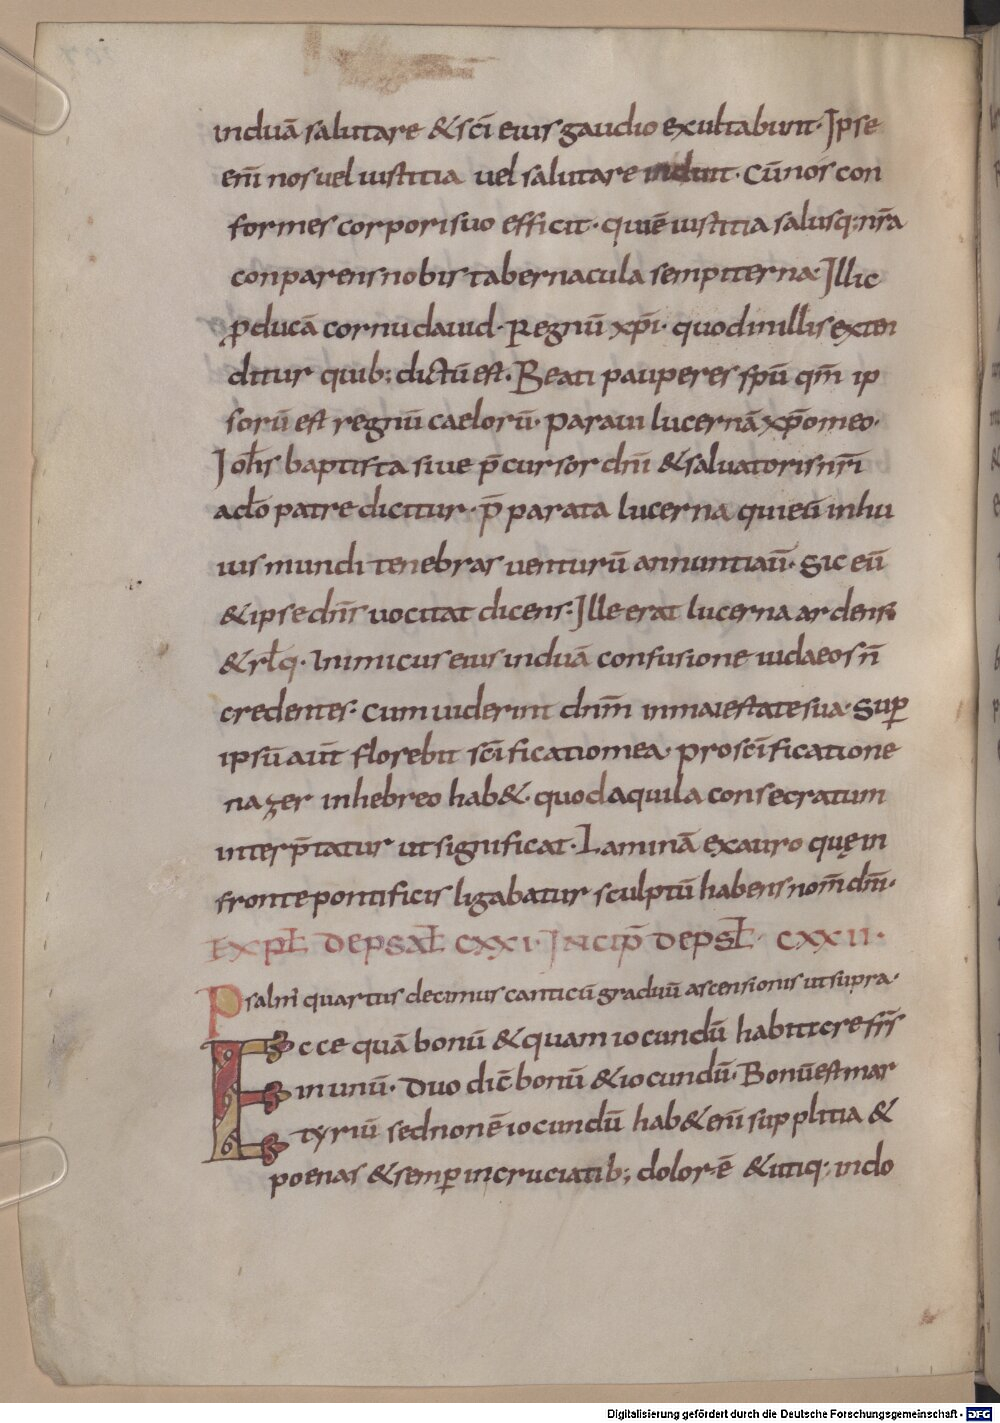 induā salutare & sc̄i eius gaudio exultabunt· Ipse
eni̅ nos vel iustitia vel salutare induit· cū nos con
formes corpori suo efficit· qui ē iustitia salusq; nr̄a
conparens nobis tabernacula sempiterna· Illic
ꝓducā cornu dauid· Regnū xp̄i· quod in illis exten
ditur quib; dictū est· Beati pauperes sp̄u qm̄ ip
sorū est regnū caelorū· Paraui lucernā xp̄o meo·
Ioh̄s baptista siue p̄cursor dn̄i & saluatoris nr̄i
a do̅ patre dicitur· p̄parata lucerna qui eū in hu
ius mundi tenebras venturū annuntiau̅· Sic eū
& ipse dn̄s uocitat dicens· Ille erat lucerna ardens
& rl̄q· Inimicus eius induā confusione iudaeos n̄
credentes· cum uiderint dnm̄ in maiestate sua· Sup̱
ipsū aut̄ florebit sc̄ificatio mea· pro sc̄ificatione
nazer in hebreo hab&· quod aquila consecratum
interp̄tatur ut significat· Laminā ex auro quę in
fronte pontificis ligabatur sculptū habens nom̄ dn̄i·
EXPL̄ DE PSAL̄ CXXI· INCIP̄ DE PSL̄· CXXII·
Psalmi quartus decimus canticū graduū ascensionis ut supra·
Ecce quā bonū & quam iocundū habitare frs̄
in unū· Duo dic̄ bonū & iocundū· Bonū est mar
tyriū sed non ē iocundū hab& eni̅ supplitia &
poenas & semp̱ in cruciatib; dolor ē & utiq; in do
Digitalisierung gefördert durch die Deutsche Forschungsgemeinschaft - DFG